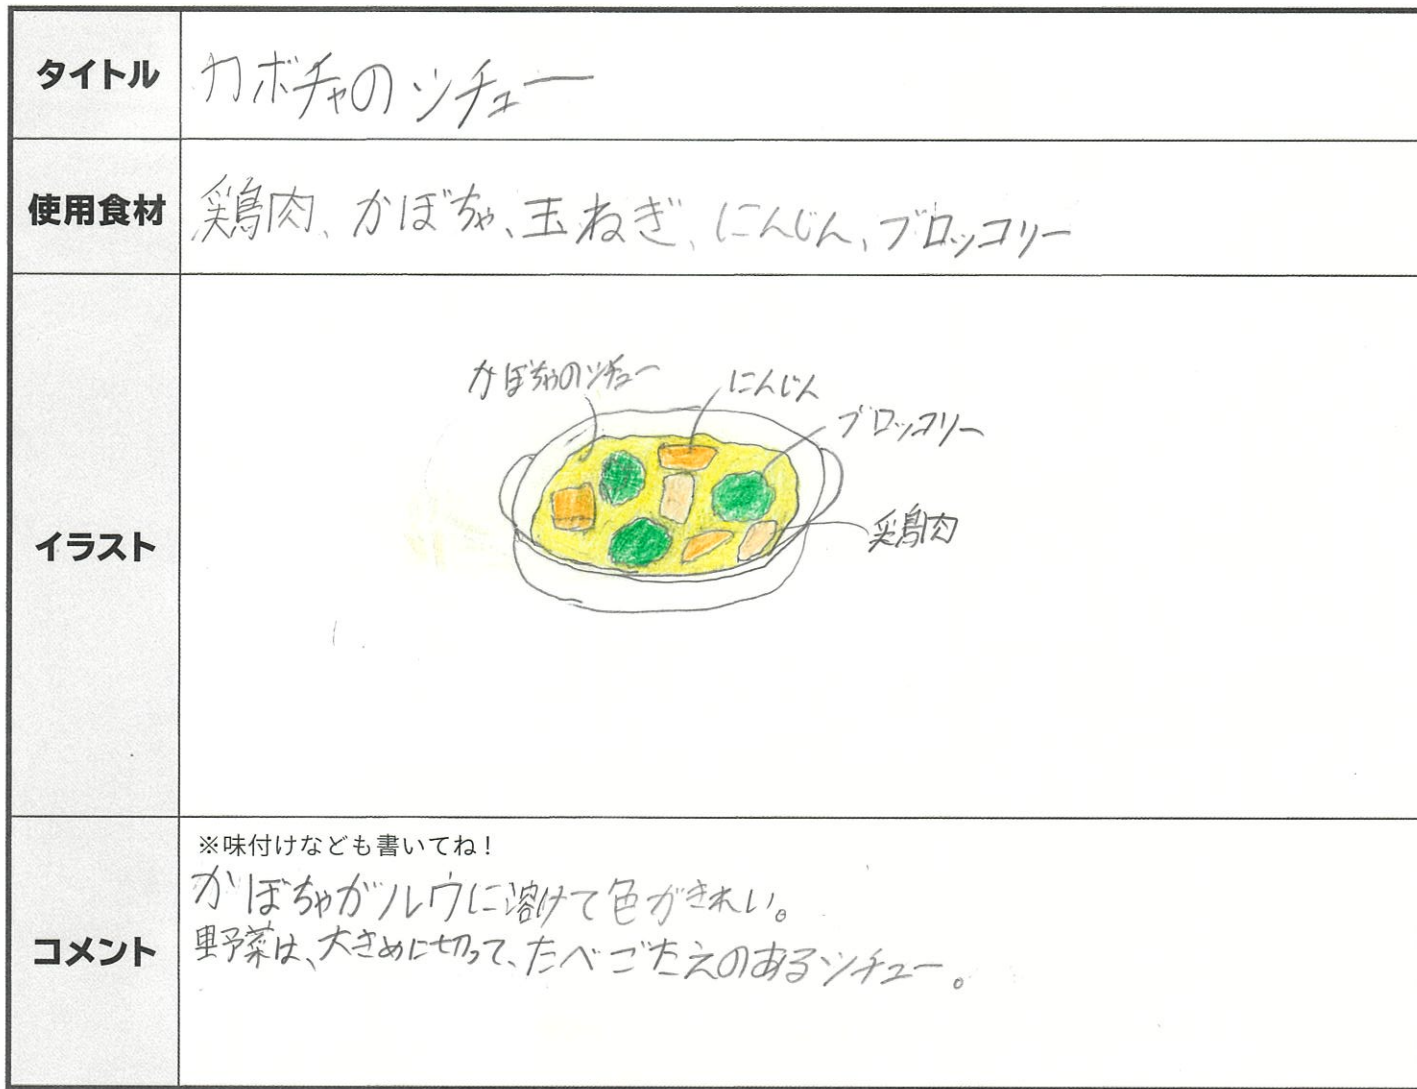 タイトル
カボチャのシチュー
使用食材
鶏肉、かぼちゃ、玉ねぎ、にんじん、ブロッコリー
イラスト
かぼちゃのシチュー
にんじん
ブロッコリー
鶏肉
コメント
※味付けなども書いてね！
かぼちゃがルウに溶けて色がきれい。
野菜は、大きめに切って、たべごたえのあるシチュー。